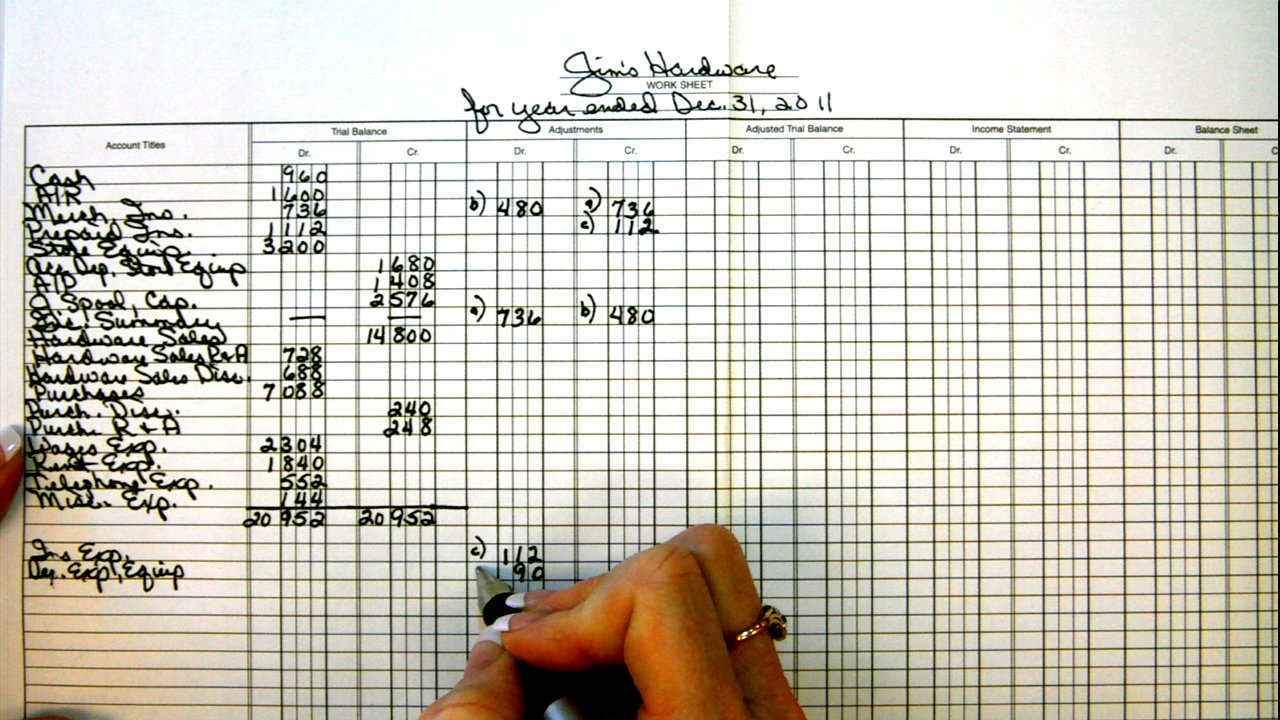 Jim's Hardware
WORK SHEET
for year ended Dec. 31, 2011
Account Titles Trial Balance Adjustments Adjusted Trial Balance Income Statement Balance Sheet
Dr. Cr. Dr. Cr. Dr. Cr. Dr. Cr. Dr. C
Cash 960
A/R 1600
Merch. Inv. 736 b) 480 a) 736
Prepaid Ins. 1112 c) 112
Store Equip. 3200
Acc. Dep. Store Equip 1680
A/P 1408
J. Spool, Cap. 2576
Inc. Summary — — a) 736 b) 480
Hardware Sales 14800
Hardware Sales R&A 728
Hardware Sales Disc. 688
Purchases 7088
Purch. Disc. 240
Purch. R & A 248
Wages Exp. 2304
Rent Exp. 1840
Telephone Exp. 552
Misc. Exp. 144
20952 20952
Ins Exp. c) 112
Dep. Exp, Equip 90